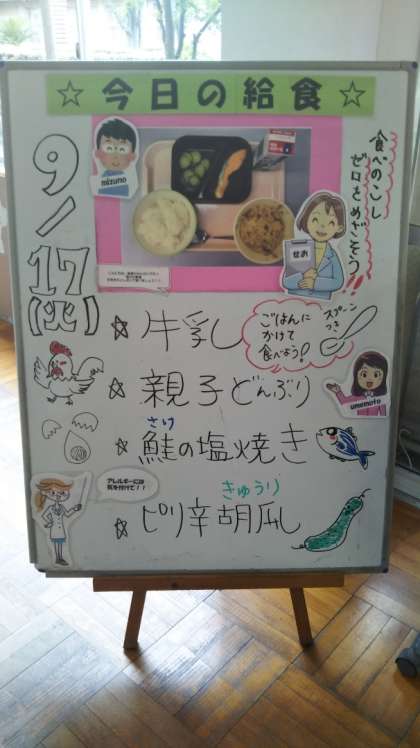 ☆今日の給食☆
9/17(火)
mizuno
食べのこし
ゼロをめざそう!!
せお
☆牛乳
ごはんに
かけて
食べよう!
スプーン
つき
☆親子どんぶり
umemoto
さけ
☆鮭の塩焼き
アレルギーには
気を付けて!!
きゅうり
☆ピリ辛胡瓜